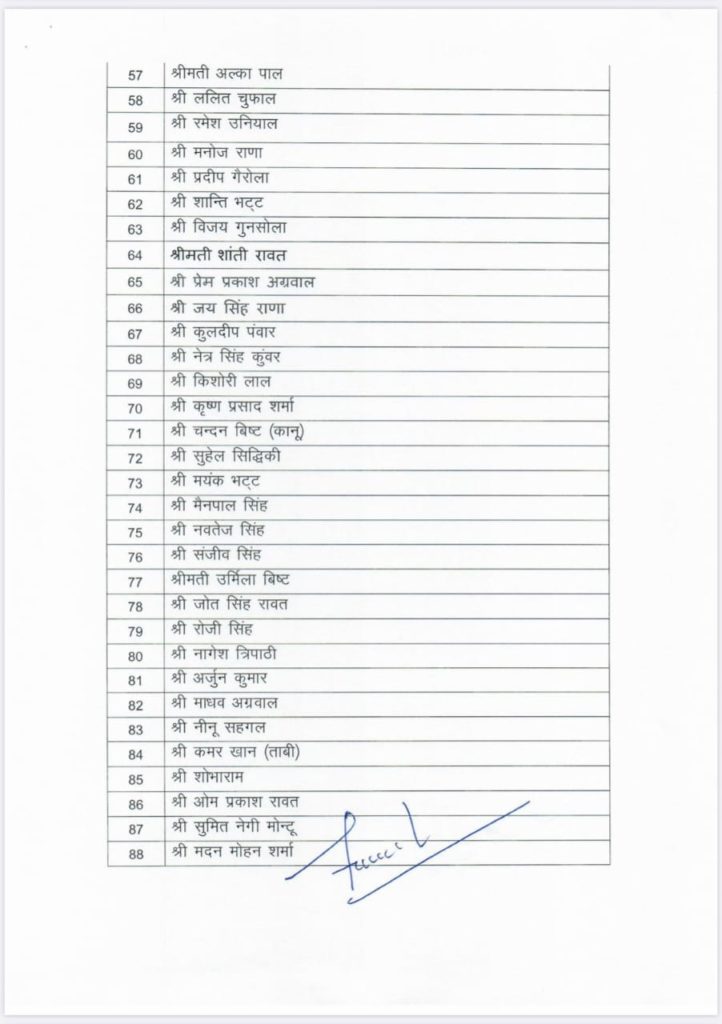 57 श्रीमती अल्का पाल
58 श्री ललित चुफाल
59 श्री रमेश उनियाल
60 श्री मनोज राणा
61 श्री प्रदीप गैरोला
62 श्री शान्ति भट्ट
63 श्री विजय गुनसोला
64 श्रीमती शांती रावत
65 श्री प्रेम प्रकाश अग्रवाल
66 श्री जय सिंह राणा
67 श्री कुलदीप पंवार
68 श्री नेत्र सिंह कुंवर
69 श्री किशोरी लाल
70 श्री कृष्ण प्रसाद शर्मा
71 श्री चन्दन बिष्ट (कानू)
72 श्री सुहेल सिद्धिकी
73 श्री मयंक भट्ट
74 श्री मैनपाल सिंह
75 श्री नवतेज सिंह
76 श्री संजीव सिंह
77 श्रीमती उर्मिला बिष्ट
78 श्री जोत सिंह रावत
79 श्री रोजी सिंह
80 श्री नागेश त्रिपाठी
81 श्री अर्जुन कुमार
82 श्री माधव अग्रवाल
83 श्री नीनू सहगल
84 श्री कमर खान (ताबी)
85 श्री शोभाराम
86 श्री ओम प्रकाश रावत
87 श्री सुमित नेगी मोन्टू
88 श्री मदन मोहन शर्मा